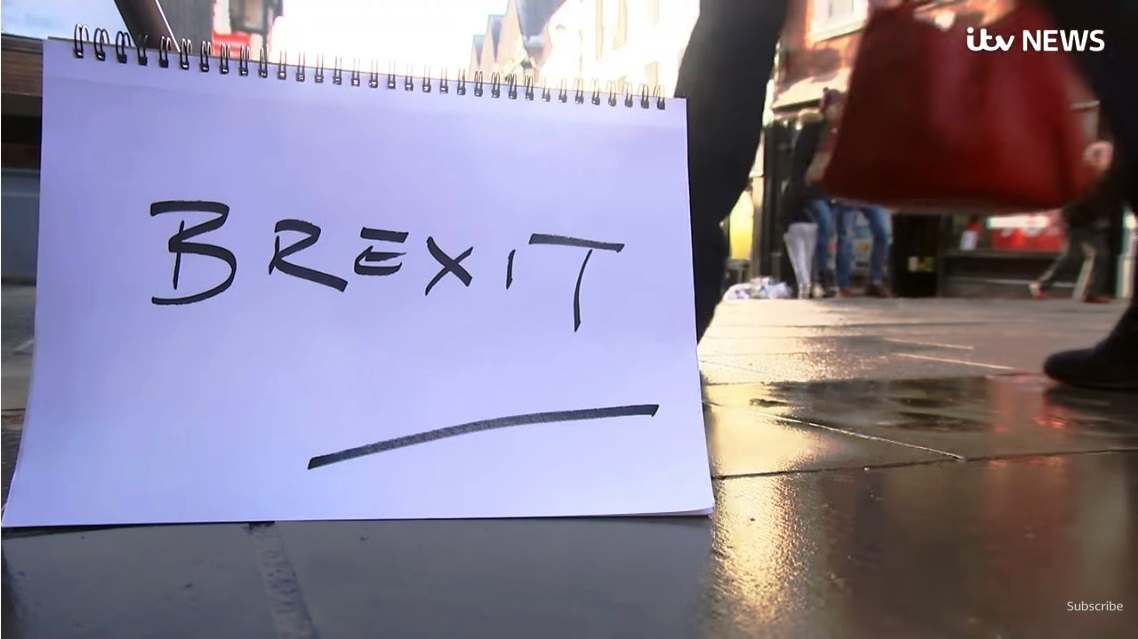 itv NEWS
BREXIT
Subscribe